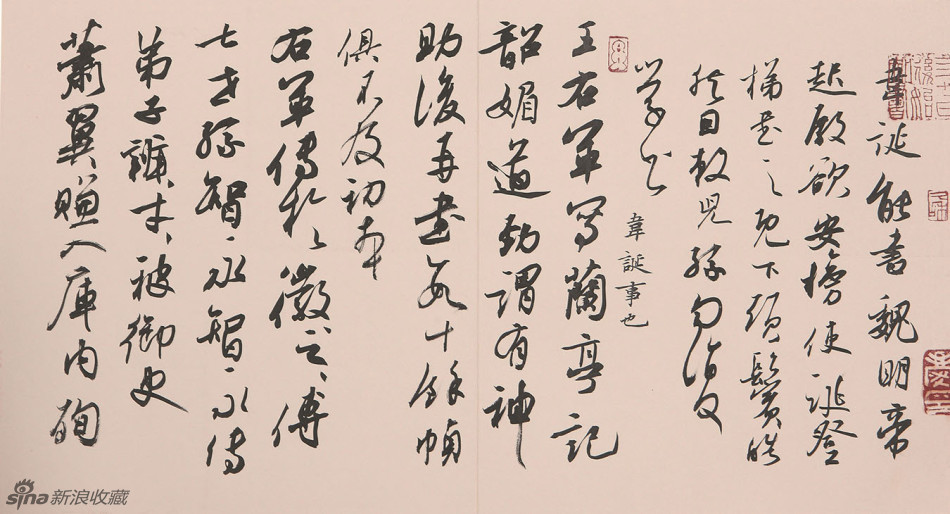 韋誕能書魏明帝
起殿欲安榜使誕登
梯書之既下頭鬢皓
然因敕兒孫勿復
學書
韋誕事也
王右軍寫蘭亭記
韶媚遒勁謂有神
助後再書數十餘幀
俱不及初本
右軍傳於徽之之傳
七世孫智永智永傳
弟子辯才被御史
蕭翼賺入庫內殉
sina新浪收藏